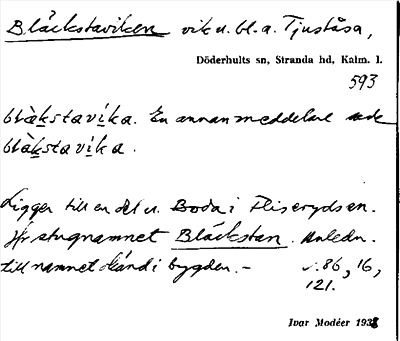 Bläckstaviken vik u. bl. a. Tjuståsa,
Döderhults sn, Stranda hd, Kalm. l.
593
blàkstavíka. En annan meddelare sade
blàkstavíka.
Ligger till en del u. Boda i Fliseryds sn.
Jfr stugnamnet Bläckstan. Anledn.
till namnet okänd i bygden. –
v. 86, 16,
121.
Ivar Modéer 1938